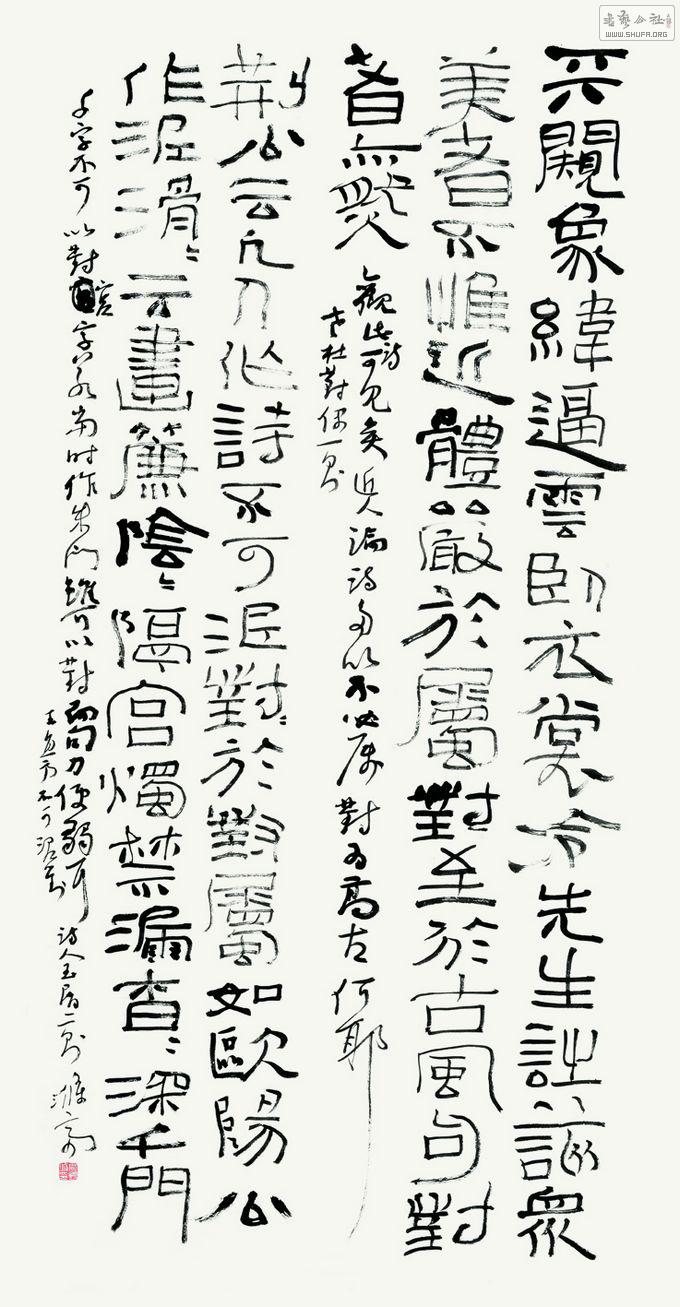 天闕象緯逼雲卧衣裳冷先生詩該眾
美者不惟近體嚴於屬對至於古風句對
者亦然
觀此詩可見矣近人論詩多以不必屬對為高古何耶
老杜對偶一則
荊公云凡人作詩不可泥對〻於對屬如歐陽公
作泥滑〻云畫簾陰〻隔宮燭禁漏杳〻深千門
千字不可以對宮字若當時作朱門雖可以對而句力便弱耳
不可泥對
詩人玉屑二則
書藝公社
WWW.SHUFA.ORG